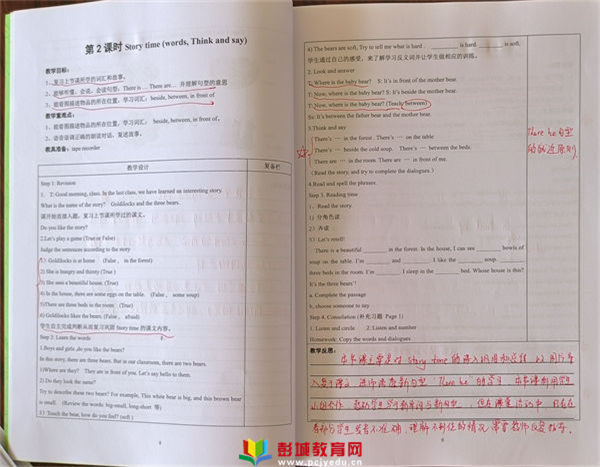 第 2 课时 Story time (words, Think and say)
教学目标：
1、复习上节课所学的词汇和故事。
2、能够听懂、会说、会读句型：There is… There are… 并理解句型的意思
3、能看图描述物品的所在位置，学习词汇：beside, between, in front of。
教学重难点：
1、能看图描述物品的所在位置，学习词汇： beside, between, in front of。
2、语音语调正确的朗读对话，复述故事。
教具准备：tape recorder
教学设计
复备栏
Step 1: Revision
1. T: Good morning, class. In the last class, we have learned an interesting story.
What is the name of the story? Goldilocks and the three bears.
课开始直接入题，复习上节课所学过的课文。
Do you like the story?
2.Let's play a game (True or False)
Judge the sentences according to the story
1) Goldilocks is at home (False, in the forest)
2) She is hungry and thirsty (True)
3) She sees a beautiful house. (True)
4) In the house, there are some eggs on the table. (False, some soup)
5)There are three beds in the room. (True)
6) Goldilocks likes the bears. (False, afraid)
学生自主完成判断从而复习巩固 Story time 的课文内容。
Step 2: Learn the words
1.Boys and girls ,do you like the bears?
In this story, there are three bears. But in our classroom, there are two bears.
1)Where are they? They are in front of you. Let's say hello to them.
2) Do they look the same?
Try to describe these two bears? For example, This white bear is big, and this brown bear
is small. (Review the words: big-small, long-short 等)
3) Touch the bear, how do you find? (soft)
4) The bears are soft, Try to tell me what is hard . ________ is hard. ________ is soft.
学生通过自己的感受，来了解学习反义词并让学生做相应的训练。
2. Look and answer
T: Where is the baby bear? S: It's in front of the mother bear.
T: Now, where is the baby bear? S: It's beside the mother bear.
T: Now, where is the baby bear? (Teach: between)
Ss: It's between the father bear and the mother bear.
3.Think and say
There's … in the forest . There's … on the table
There's … beside the cold soup. There's … between the beds.
There are … in the room. There are … in front of me.
(Read the story, and try to complete the dialogues.)
There be 句型
的就近原则
4.Read and spell the phrases.
Step 3. Reading time
1、Read the story.
1) 分角色读
2) 齐读
3) Let's retell!
There is a beautiful ________ in the forest. In the house, I can see ________ bowls of
soup on the table. I'm ________ and ________. I like the ________ soup. ________
three beds in the room. I'm ________. I sleep in the ________ bed. Whose house is this?
It's the three bears'!
a. Complete the passage
b. choose someone to say
Step 4. Consolation (补充习题 Page 1)
1. Listen and circle 2. Listen and number
Homework: Copy the words and dialogues
教学反思：
彭城教育网
www.pcjyedu.cn